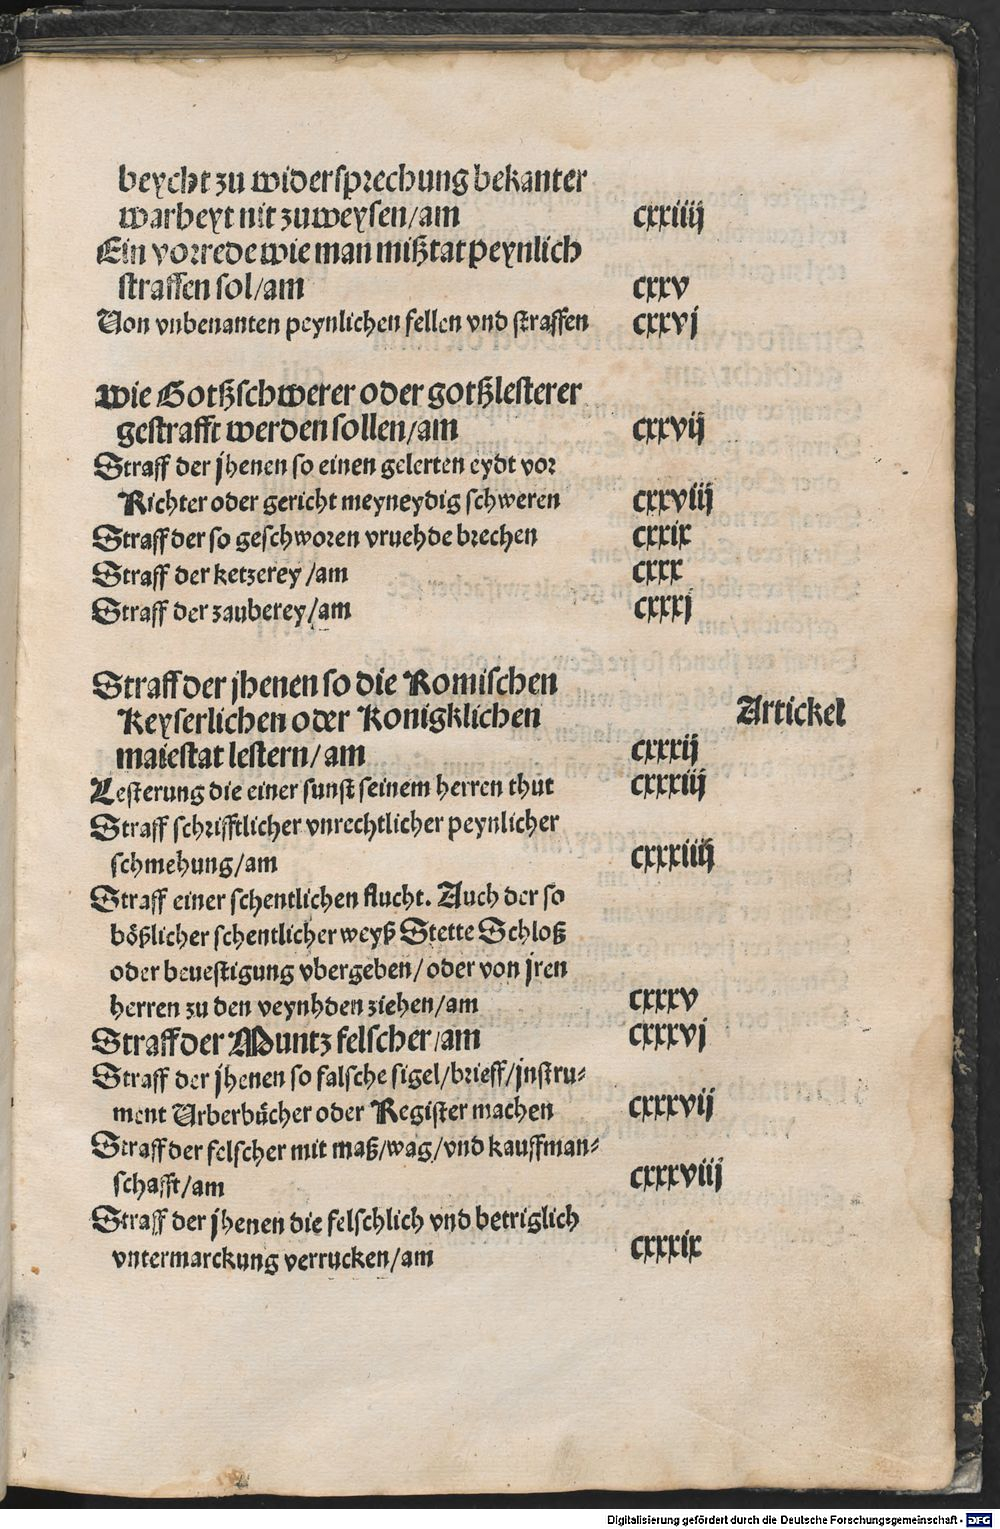 beycht zu widersprechung bekanter
warheyt nit zuweysen/am cxxiiij
Ein vorrede wie man mißtat peynlich
straffen sol/am cxxv
Von vnbenanten peynlichen fellen vnd straffen cxxvj
wie Gotßschwerer oder gotßlesterer
gestrafft werden sollen/am cxxvij
Straff der jhenen so einen gelerten eydt vor
Richter oder gericht meyneydig schweren cxxviij
Straff der so geschworen vruehde brechen cxxix
Straff der ketzerey /am cxxx
Straff der zauberey/am cxxxj
Straff der jhenen so die Romischen
Keyserlichen oder Konigklichen Artickel
maiestat lestern/am cxxxij
Lesterung die einer sunst seinem herren thut cxxxiij
Straff schrifftlicher vnrechtlicher peynlicher
schmehung/am cxxxiiij
Straff einer schentlichen flucht. Auch der so
bößlicher schentlicher weyß Stette Schloß
oder beuestigung vbergeben/oder von jren
herren zu den veynhden ziehen/am cxxxv
Straff der Muntz felscher/am cxxxvj
Straff der jhenen so falsche sigel/brieff/jnstru-
ment Vrberbücher oder Register machen cxxxvij
Straff der felscher mit maß/wag/vnd kauffman-
schafft/am cxxxviij
Straff der jhenen die felschlich vnd betriglich
vntermarckung verrucken/am cxxxix
Digitalisierung gefördert durch die Deutsche Forschungsgemeinschaft - DFG